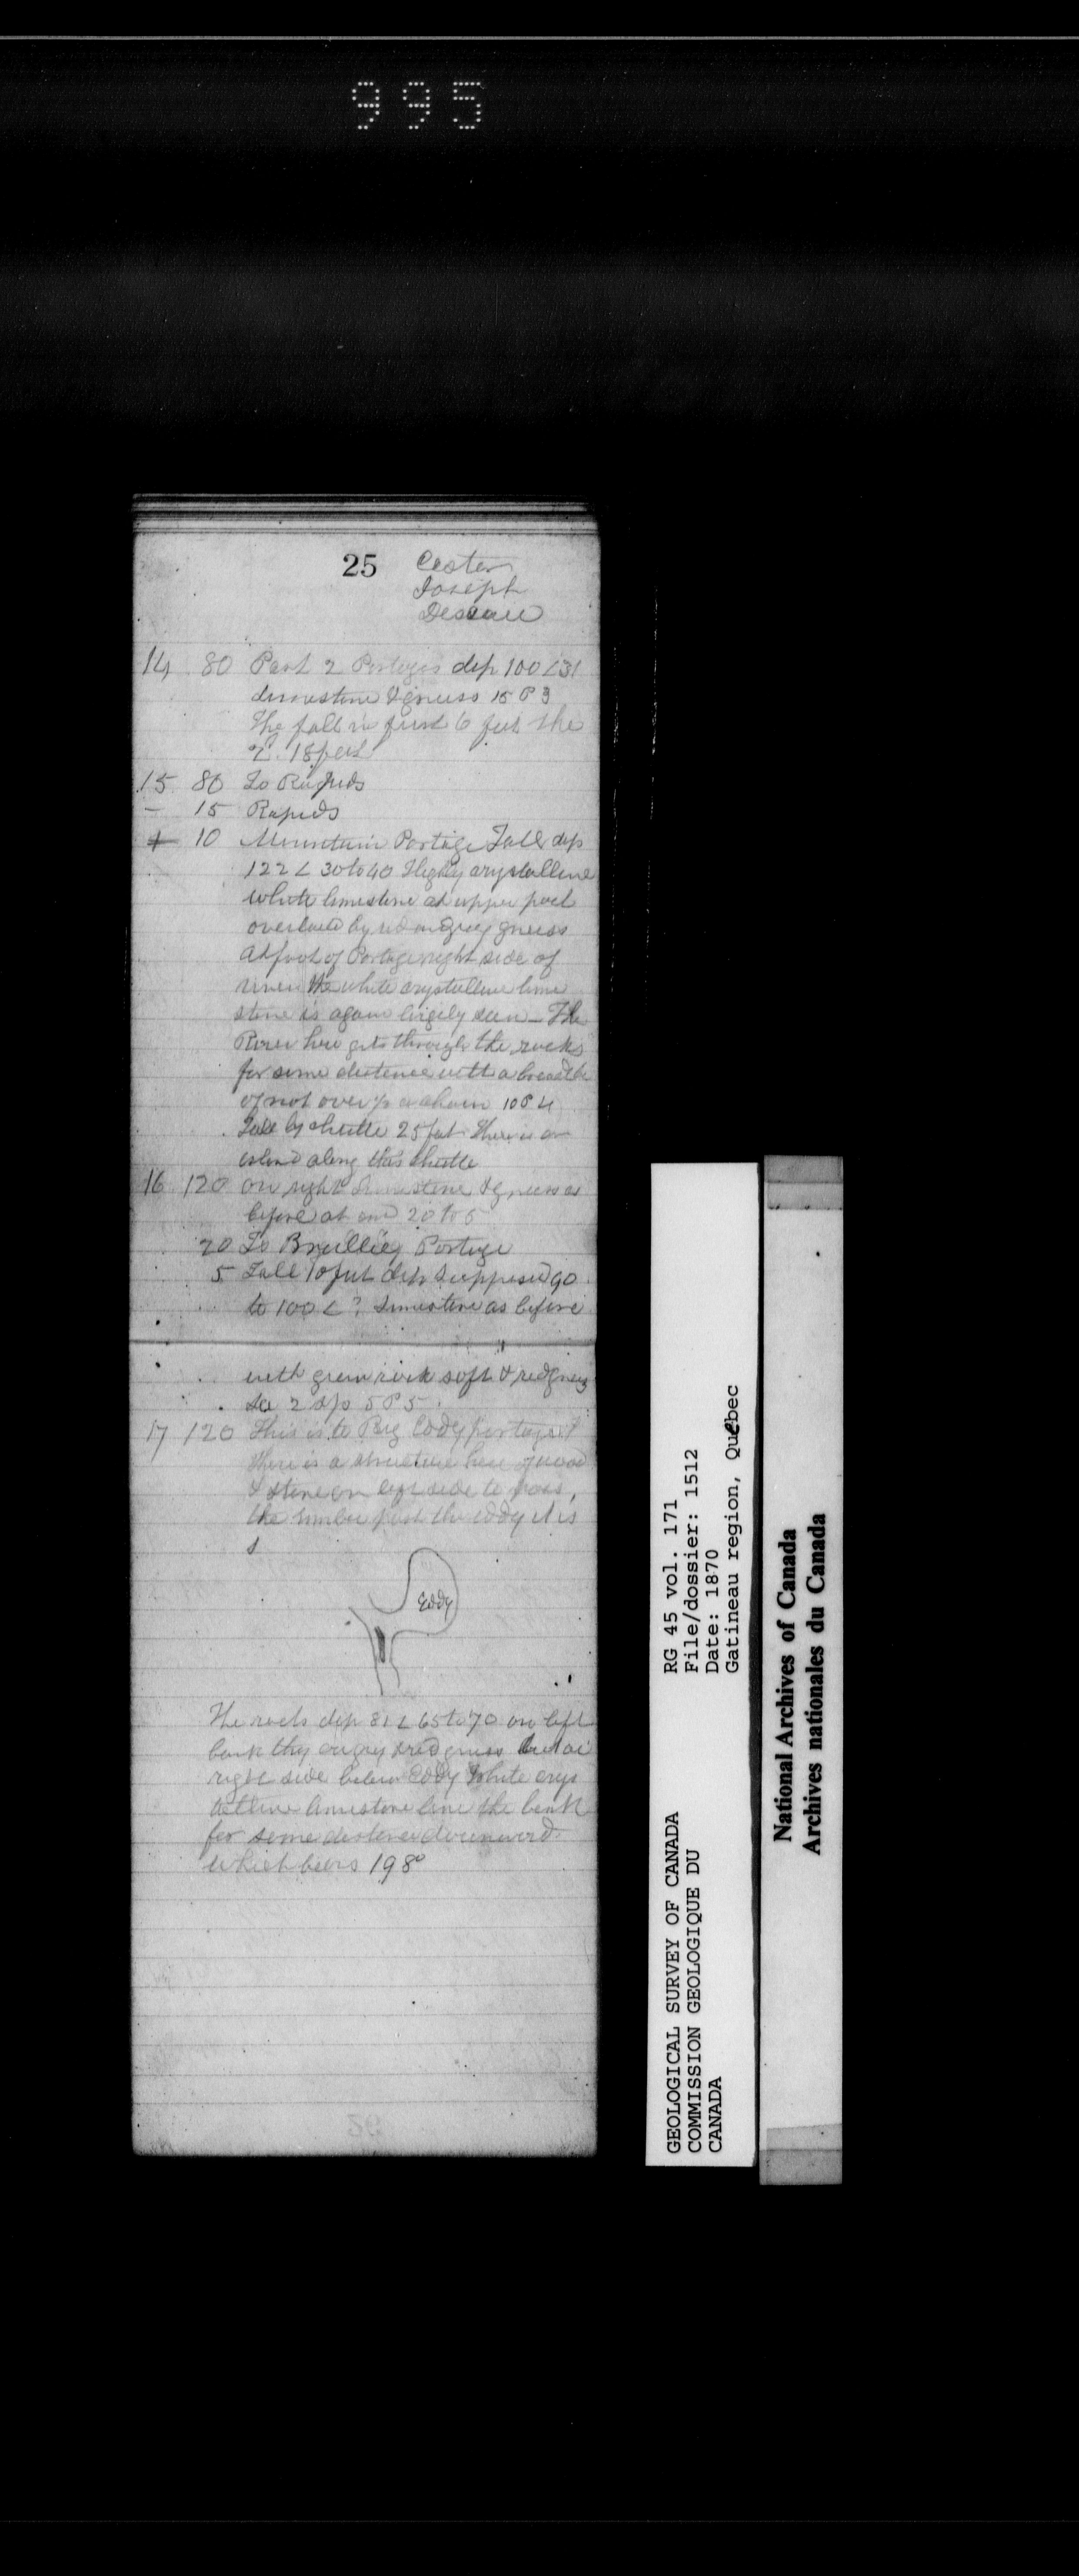 995
25
Joseph
14 80 Past 2 Portages dip 100 < 31
limestone & gneiss 15 P 3
The fall in first 6 feet the
2. 18 feet
15 80 To Rapids
– 15 Rapids
10 Mountain Portage Fall dip
122 < 30 to 40 Highly crystalline
white limestone at upper part
overlaid by red and grey gneiss
At foot of Portage right side of
river the white crystalline lime
stone is again largely seen – The
River here gets through the rocks
for some distance with a breadth
of not over a chain 10 P 4
Fall by shuttle 25 feet There is an
island along this shuttle
16 120 on right Limestone & gneiss as
before at 20 to 5
20 To Portage
5 Fall 10 feet dip supposed 90
to 100 < ? Limestone as before
with green rock soft & red gneiss
2 5 P 5
17 120 This is to Big Eddy portage
There is a structure here of wood
& stone on left side to pass
the timber past the eddy it is
Eddy
The rocks dip 81 < 65 to 70 on left
bank they are grey & red gneiss but on
right side below Eddy White crys
talline limestone line the bank
for some distance downward
which bears 198°
GEOLOGICAL SURVEY OF CANADA
COMMISSION GEOLOGIQUE DU
CANADA
RG 45 vol. 171
File/dossier: 1512
Date: 1870
Gatineau region, Québec
National Archives of Canada
Archives nationales du Canada